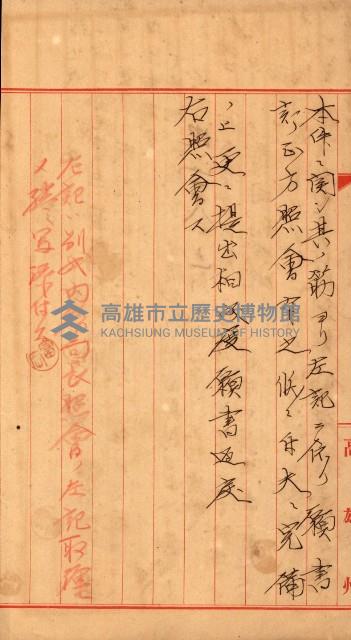 本件ニ関シ其ノ筋ヨリ左記ニ依リ願書
訂正方照会有之候ニ付大ニ完備
ノ上更ニ提出相成度願書返戻
右照会ス
左記ハ別
内 局長照会ノ左記取
ノ 写添付ス
高雄州
高雄市立歷史博物館
KAOHSIUNG MUSEUM OF HISTORY